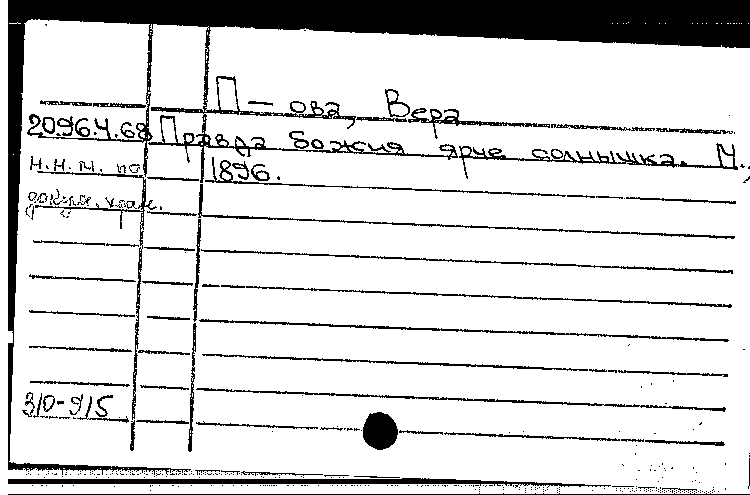 П – ова, Вера
2096.4.68 Правда божия ярче солнышка. М.,
Н.Н.М. по 1896.
докум. хран.
310-915